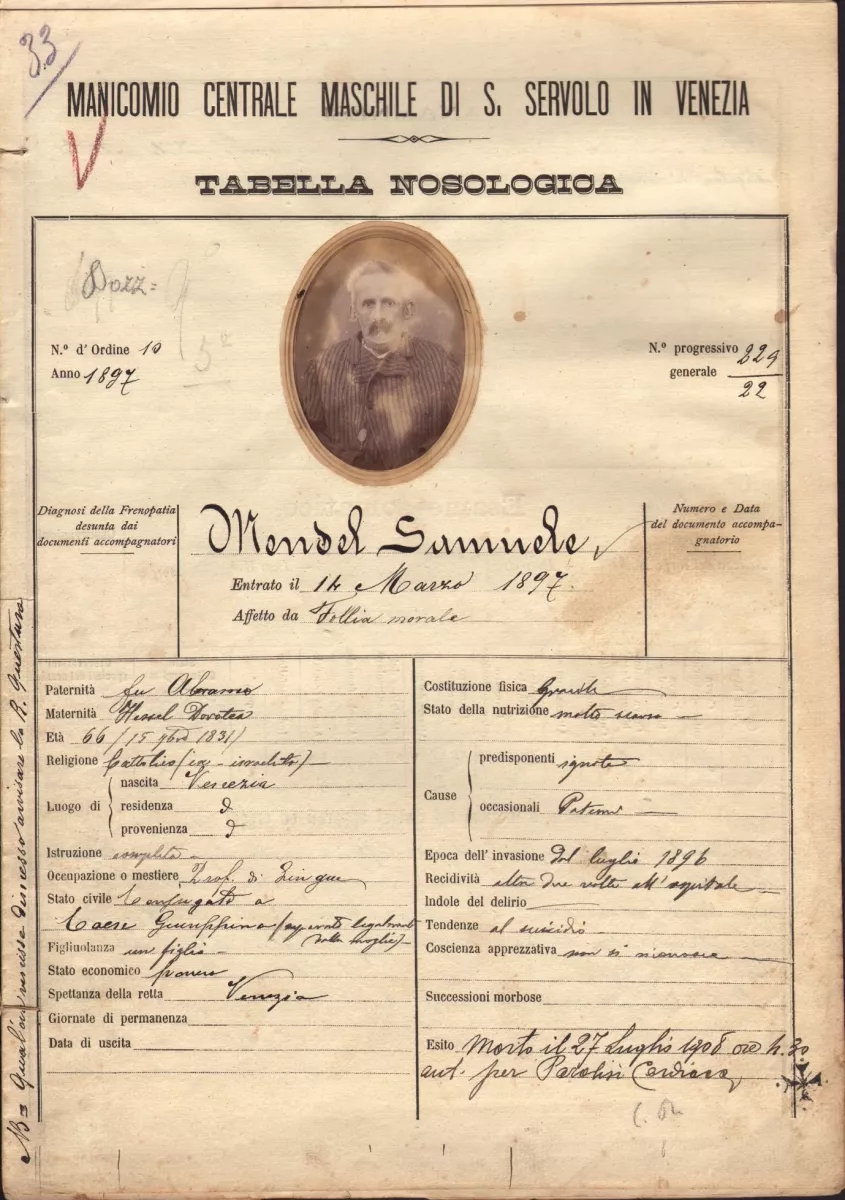 33
MANICOMIO CENTRALE MASCHILE DI S. SERVOLO IN VENEZIA
TABELLA NOSOLOGICA
Dozz=
5ª
N.º d'Ordine 10
Anno 1897
N.º progressivo 229
generale 22
Diagnosi della Frenopatia
desunta dai
documenti accompagnatori
Mendel Samuele
Entrato il 14 Marzo 1897.
Affetto da Follia morale
Numero e Data
del documento accompa-
gnatorio
Paternità fu Abramo
Maternità Hessel Dorotea
Età 66 /15 9bre 1831/
Religione Cattolico (ex-israelita)
Luogo di
nascita Venezia
residenza
provenienza
Istruzione completa
Occupazione o mestiere Prof. di Lingue
Stato civile Conjugato a
Giuseppina (separato legalmente
dalla moglie)
Figliuolanza un figlio
Stato economico povero
Spettanza della retta Venezia
Giornate di permanenza
Data di uscita
Costituzione fisica Gracile
Stato della nutrizione molto scarso
Cause
predisponenti ignote
occasionali Patemi
Epoca dell'invasione Dal luglio 1896
Recidività altre due volte all'ospitale
Indole del delirio
Tendenze al suicidio
Coscienza apprezzativa non si riconosce
Successioni morbose
Esito Morto il 27 Luglio 1908 ore 4.30
ant. per Paralisi Cardiaca
NB= Qualora venisse dimesso avvisare la R. Questura